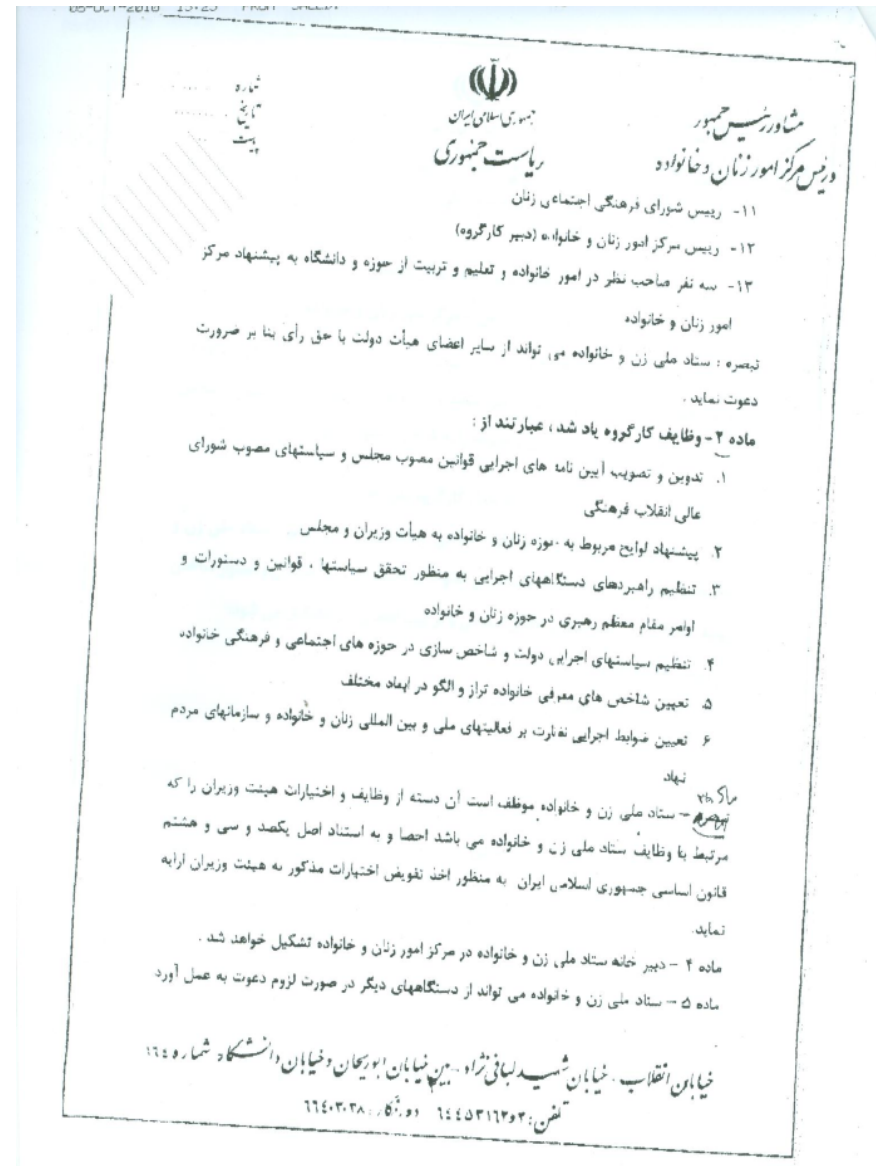 05-OCT-2010 15:25 FROM SAEED.
مشاور رئیس جمهور
و رئیس مرکز امور زنان و خانواده
جمهوری اسلامی ایران
ریاست جمهوری
شماره ........
تاریخ ........
پیوست ...
۱۱- رییس شورای فرهنگی اجتماعی زنان
۱۲- رییس مرکز امور زنان و خانواده (دبیر کارگروه)
۱۳- سه نفر صاحب نظر در امور خانواده و تعلیم و تربیت از حوزه و دانشگاه به پیشنهاد مرکز
امور زنان و خانواده
تبصره : ستاد ملی زن و خانواده می تواند از سایر اعضای هیأت دولت با حق رأی بنا بر ضرورت
دعوت نماید .
ماده ۲- وظایف کارگروه یاد شد ، عبارتند از :
۱. تدوین و تصویب آیین نامه های اجرایی قوانین مصوب مجلس و سیاستهای مصوب شورای
عالی انقلاب فرهنگی
۲. پیشنهاد لوایح مربوط به حوزه زنان و خانواده به هیأت وزیران و مجلس
۳. تنظیم راهبردهای دستگاههای اجرایی به منظور تحقق سیاستها ، قوانین و دستورات و
اوامر مقام معظم رهبری در حوزه زنان و خانواده
۴. تنظیم سیاستهای اجرایی دولت و شاخص سازی در حوزه های اجتماعی و فرهنگی خانواده
۵. تعیین شاخص های معرفی خانواده تراز و الگو در ابعاد مختلف
۶. تعیین ضوابط اجرایی نظارت بر فعالیتهای ملی و بین المللی زنان و خانواده و سازمانهای مردم
نهاد
ماده ۳
تبصره – ستاد ملی زن و خانواده موظف است آن دسته از وظایف و اختیارات هیئت وزیران را که
مرتبط با وظایف ستاد ملی زن و خانواده می باشد احصا و به استناد اصل یکصد و سی و هشتم
قانون اساسی جمهوری اسلامی ایران به منظور اخذ تفویض اختیارات مذکور به هیئت وزیران ارایه
نماید.
ماده ۴ – دبیر خانه ستاد ملی زن و خانواده در مرکز امور زنان و خانواده تشکیل خواهد شد .
ماده ۵ – ستاد ملی زن و خانواده می تواند از دستگاههای دیگر در صورت لزوم دعوت به عمل آورد
خیابان انقلاب . خیابان شهید لبافی نژاد - بین خیابان ابوریحان و خیابان دانشگاه شماره ۱٦٤
تلفن: ۳و٦٤٤٥۳۱٦۲ دورنگار: ٦٦٤۰۳۰۳۸